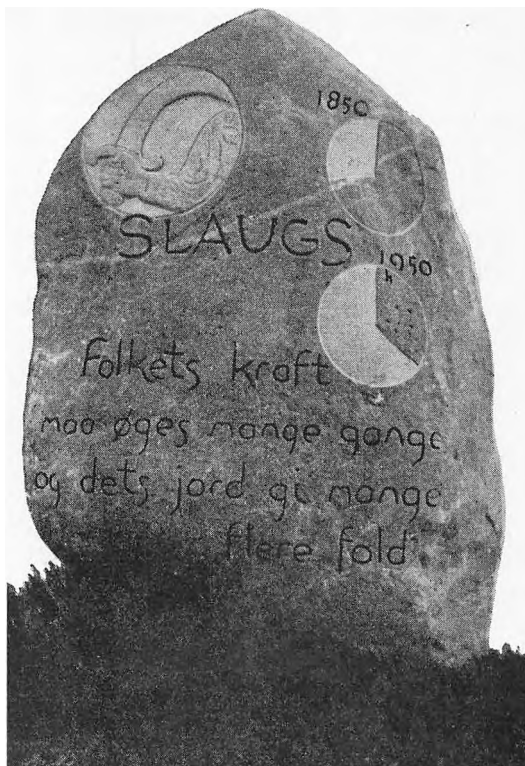 1850
SLAUGS
1950
Folkets kraft
maa øges mange gange
og dets jord gi mange
flere fold